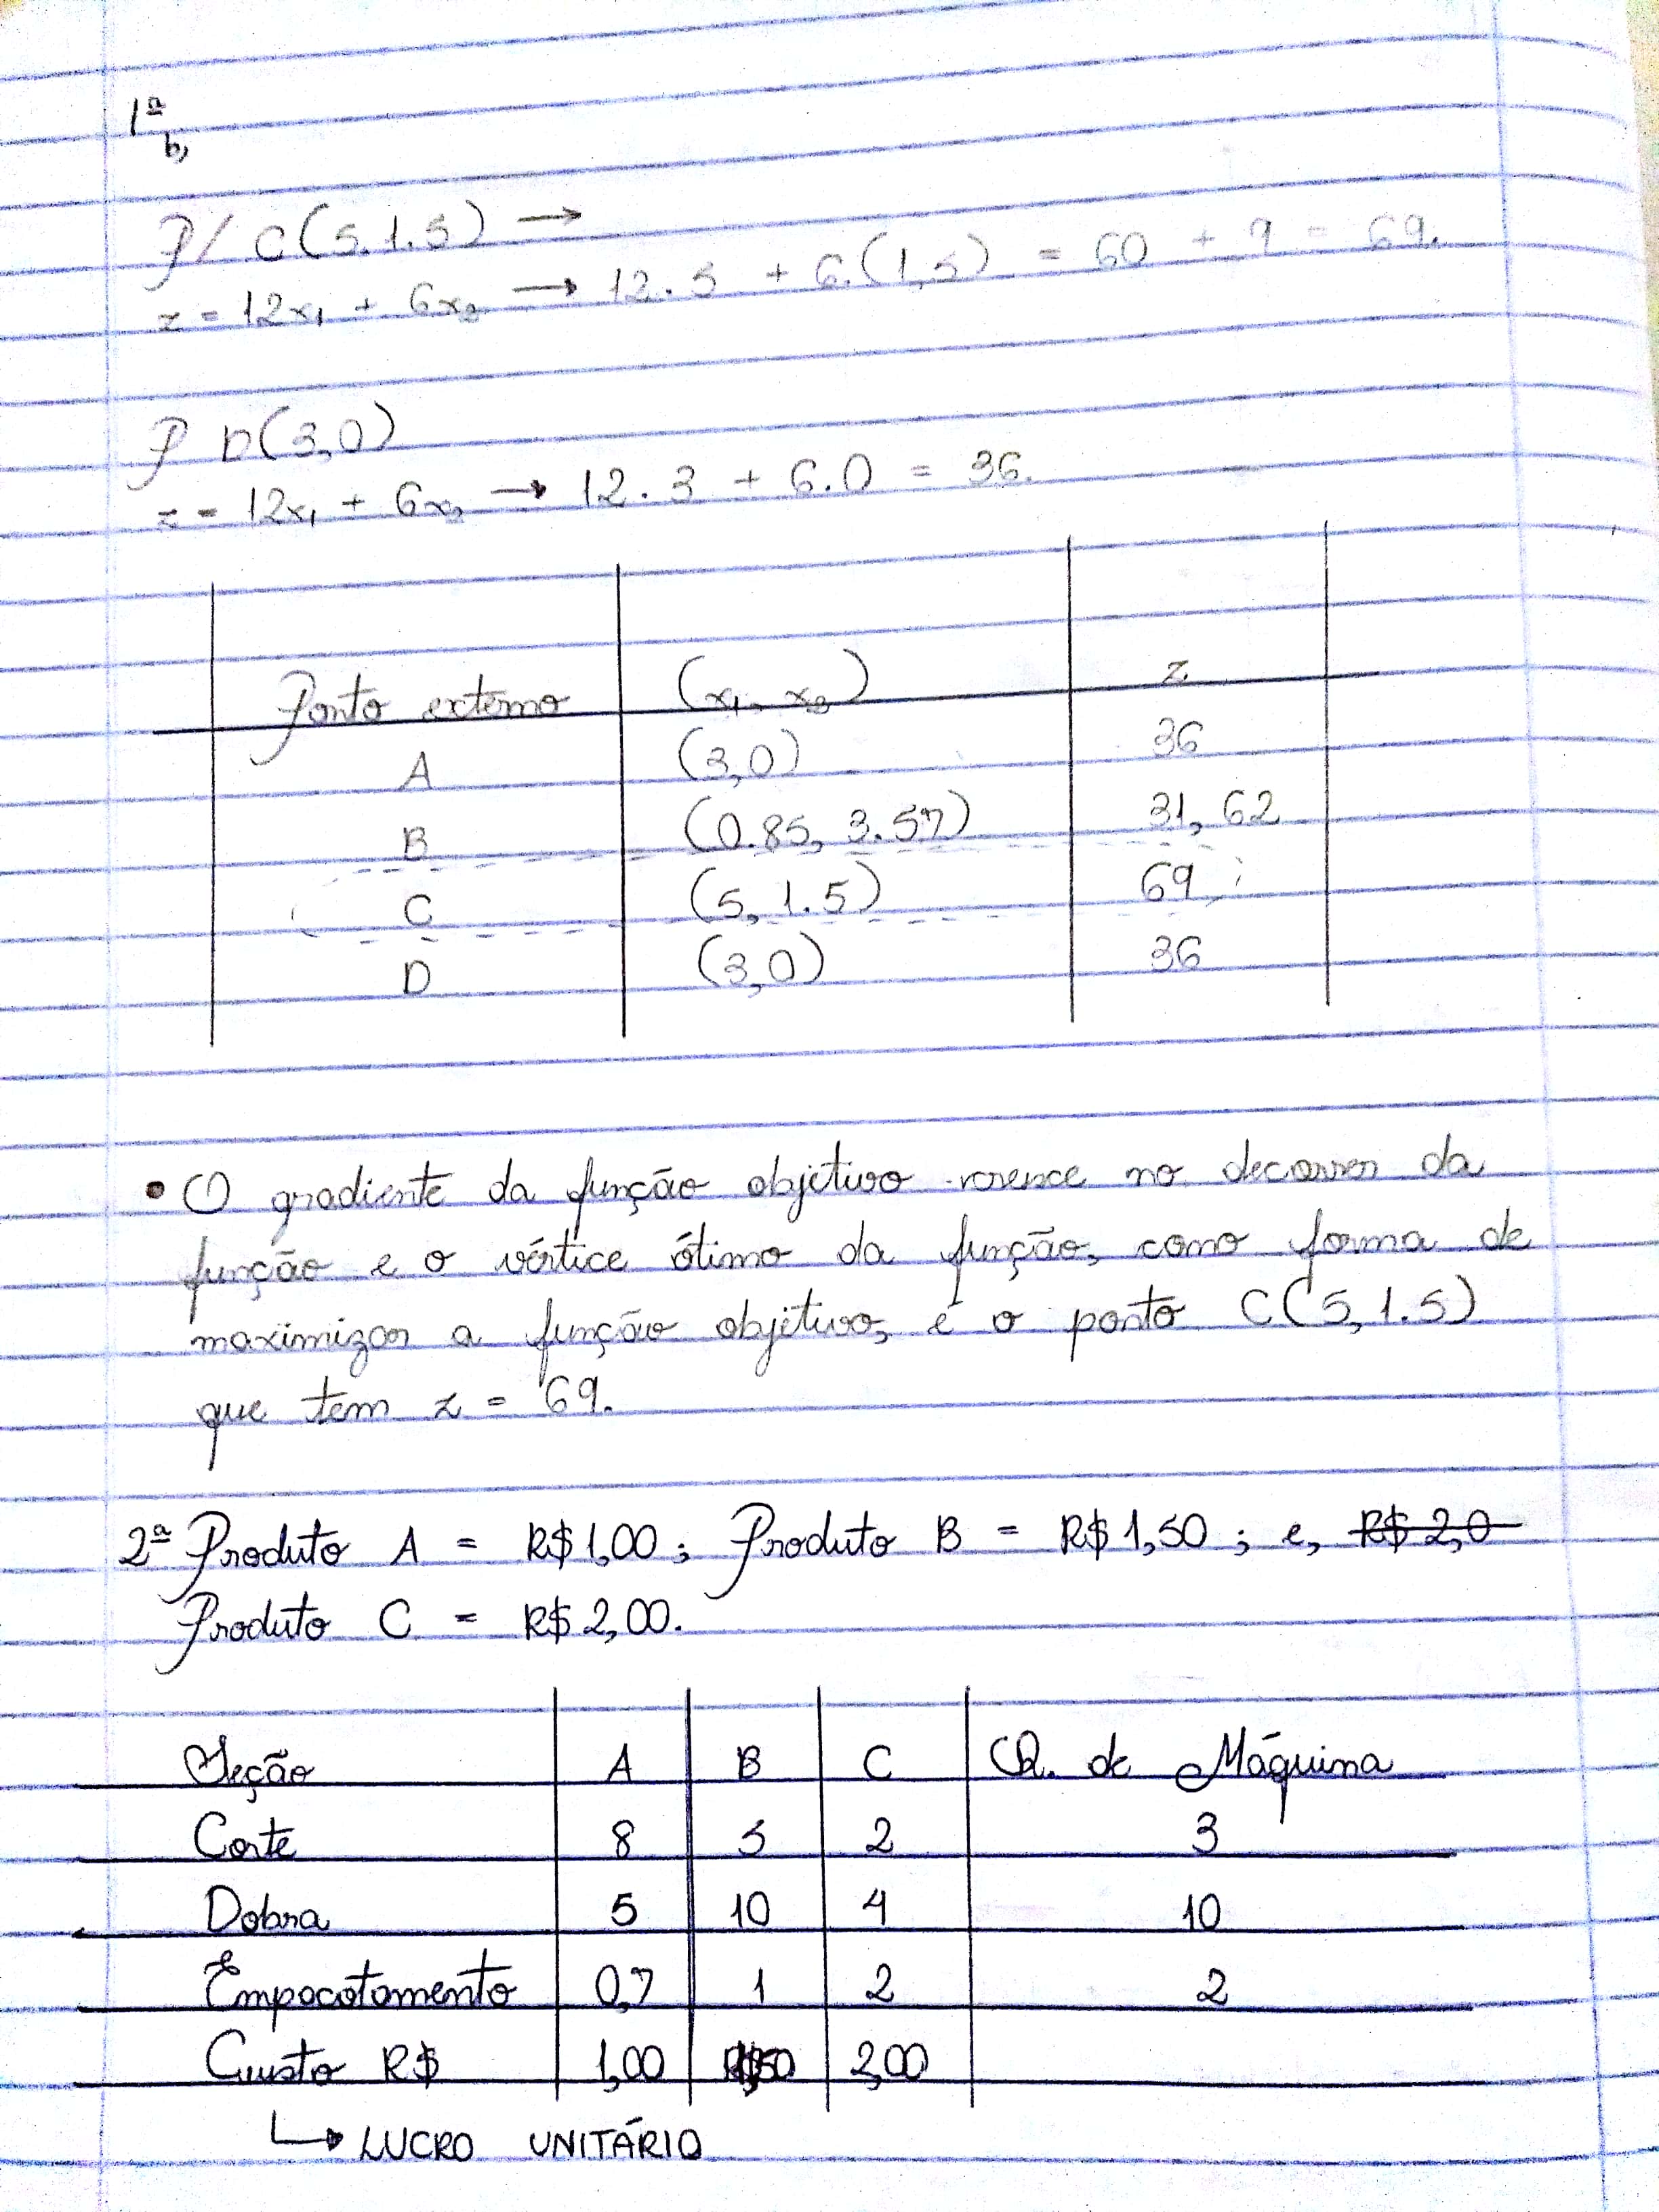 1ª
b,
P/ C(5.1.5) →
z = 12x₁ + 6x₂ → 12.5 + 6.(1,5) = 60 + 9 = 69.
P D(3,0)
z = 12x₁ + 6x₂ → 12.3 + 6.0 = 36.
Ponto extemo (x₁, x₂) z
A (3,0) 36
B (0.85, 3.57) 31,62
C (5, 1.5) 69
D (3,0) 36
• O gradiente da função objetivo cresce no decorrer da
função e o vértice ótimo da função, como forma de
maximizar a função objetivo, é o ponto C(5, 1.5)
que tem z = 69.
2ª Produto A = R$ 1,00; Produto B = R$ 1,50; e, R$ 2,0
Produto C = R$ 2,00.
Seção A B C Q. de Máquina
Corte 8 5 2 3
Dobra 5 10 4 10
Empacotamento 0,7 1 2 2
Custo R$ 1,00 1,50 2,00
↳ LUCRO UNITÁRIO